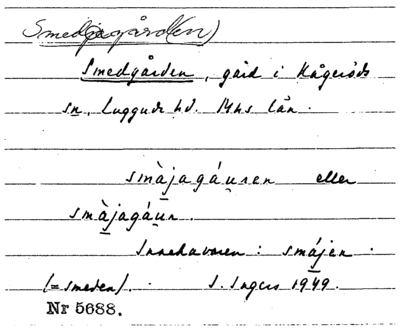 Smedjegård(en)
Smedgården, gård i Kågeröds
sn, Luggude hd. Mhs län.
smàjagáu̯ren eller
smàjagáu̯n.
Innehavaren: smájen.
(= smeden). S. Ingers 1949.
Nr 5688.